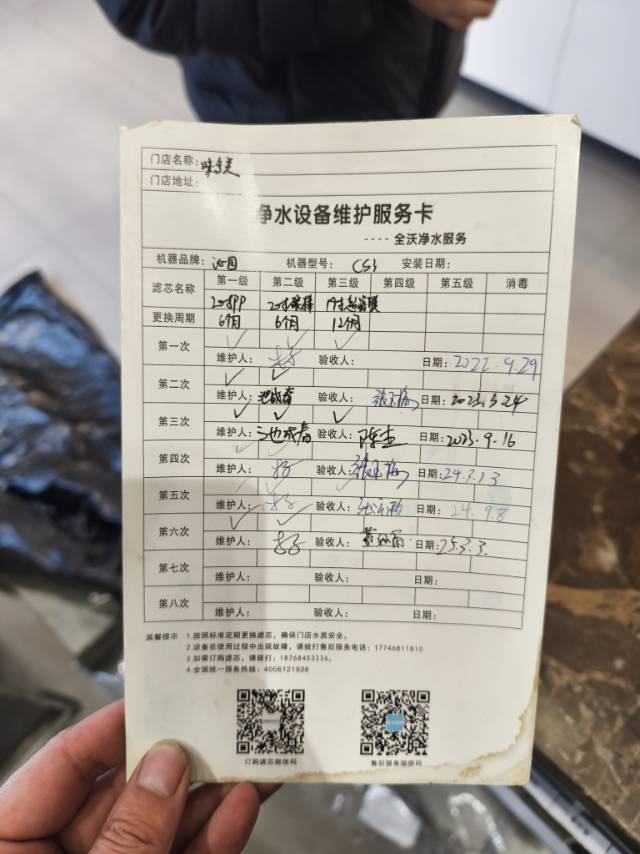 门店名称:
门店地址:
净水设备维护服务卡
----全沃净水服务
机器品牌: 沁园 机器型号: 安装日期:
滤芯名称 第一级 第二级 第三级 第四级 第五级 消毒
20寸PP
更换周期 6个月 6个月 12个月
第一次
维护人: 验收人: 日期: 2022.9.29
第二次
维护人: 验收人: 日期: 2023.3.24
第三次
维护人: 验收人: 日期: 2023.9.16
第四次
维护人: 验收人: 日期: 24.3.13
第五次
维护人: 验收人: 日期: 24.9.8
第六次
维护人: 验收人: 日期: 25.3.3.
第七次
维护人: 验收人: 日期:
第八次
维护人: 验收人: 日期:
温馨提示 1.按照标准定期更换滤芯,确保门店水质安全。
2.设备在使用过程中出现故障,请拨打售后服务电话: 17746811810
3.如需订购滤芯,请拨打: 18768453236。
4.全国统一服务热线: 4006121926
订购滤芯微信码 售后服务微信码